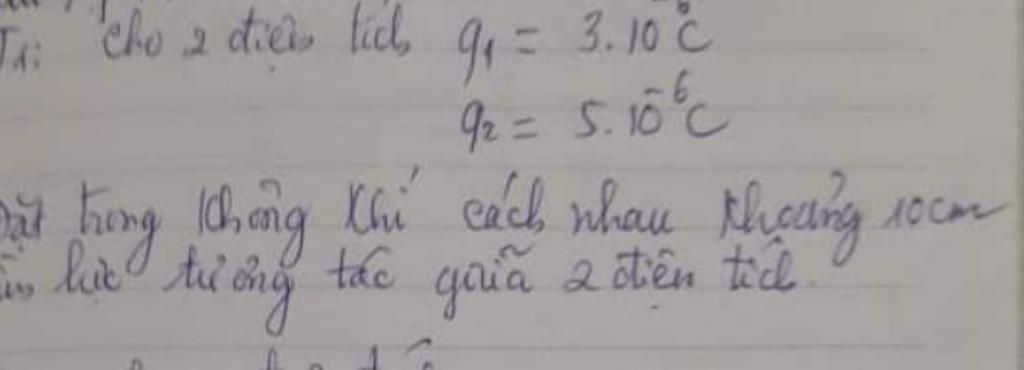 T1: Cho 2 điện tích q1 = 3.10⁻⁶C
q2 = 5.10⁻⁶C
Đặt trong không khí cách nhau khoảng 10cm
lực tương tác giữa 2 điện tích.